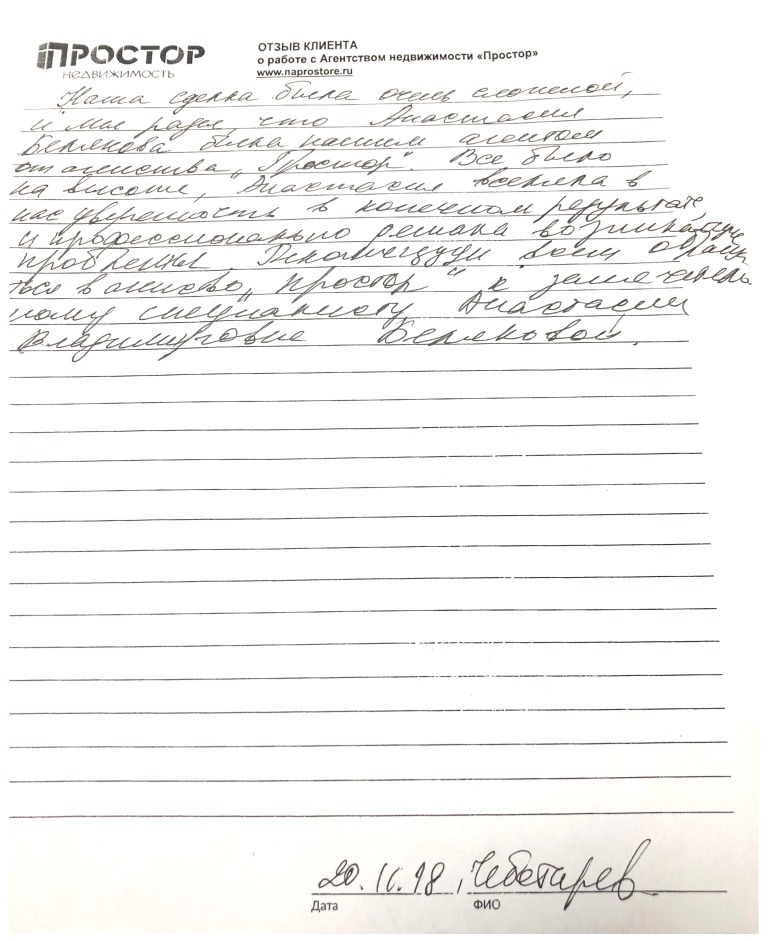 ПРОСТОР
НЕДВИЖИМОСТЬ
ОТЗЫВ КЛИЕНТА
о работе с Агентством недвижимости «Простор»
www.naprostore.ru
Наша сделка была очень сложной,
и мы рады, что Анастасия
Белякова была нашим агентом
от агентства „Простор". Все было
на высоте, Анастасия вселяла в
нас уверенность в конечном результате,
и профессионально решала возникающие
проблемы. Рекомендуем всем обращ
ться в „Простор" к замечатель-
ному специалисту Анастасии
Владимировне Беляковой.
20.11.18, Чеботарев
Дата
ФИО